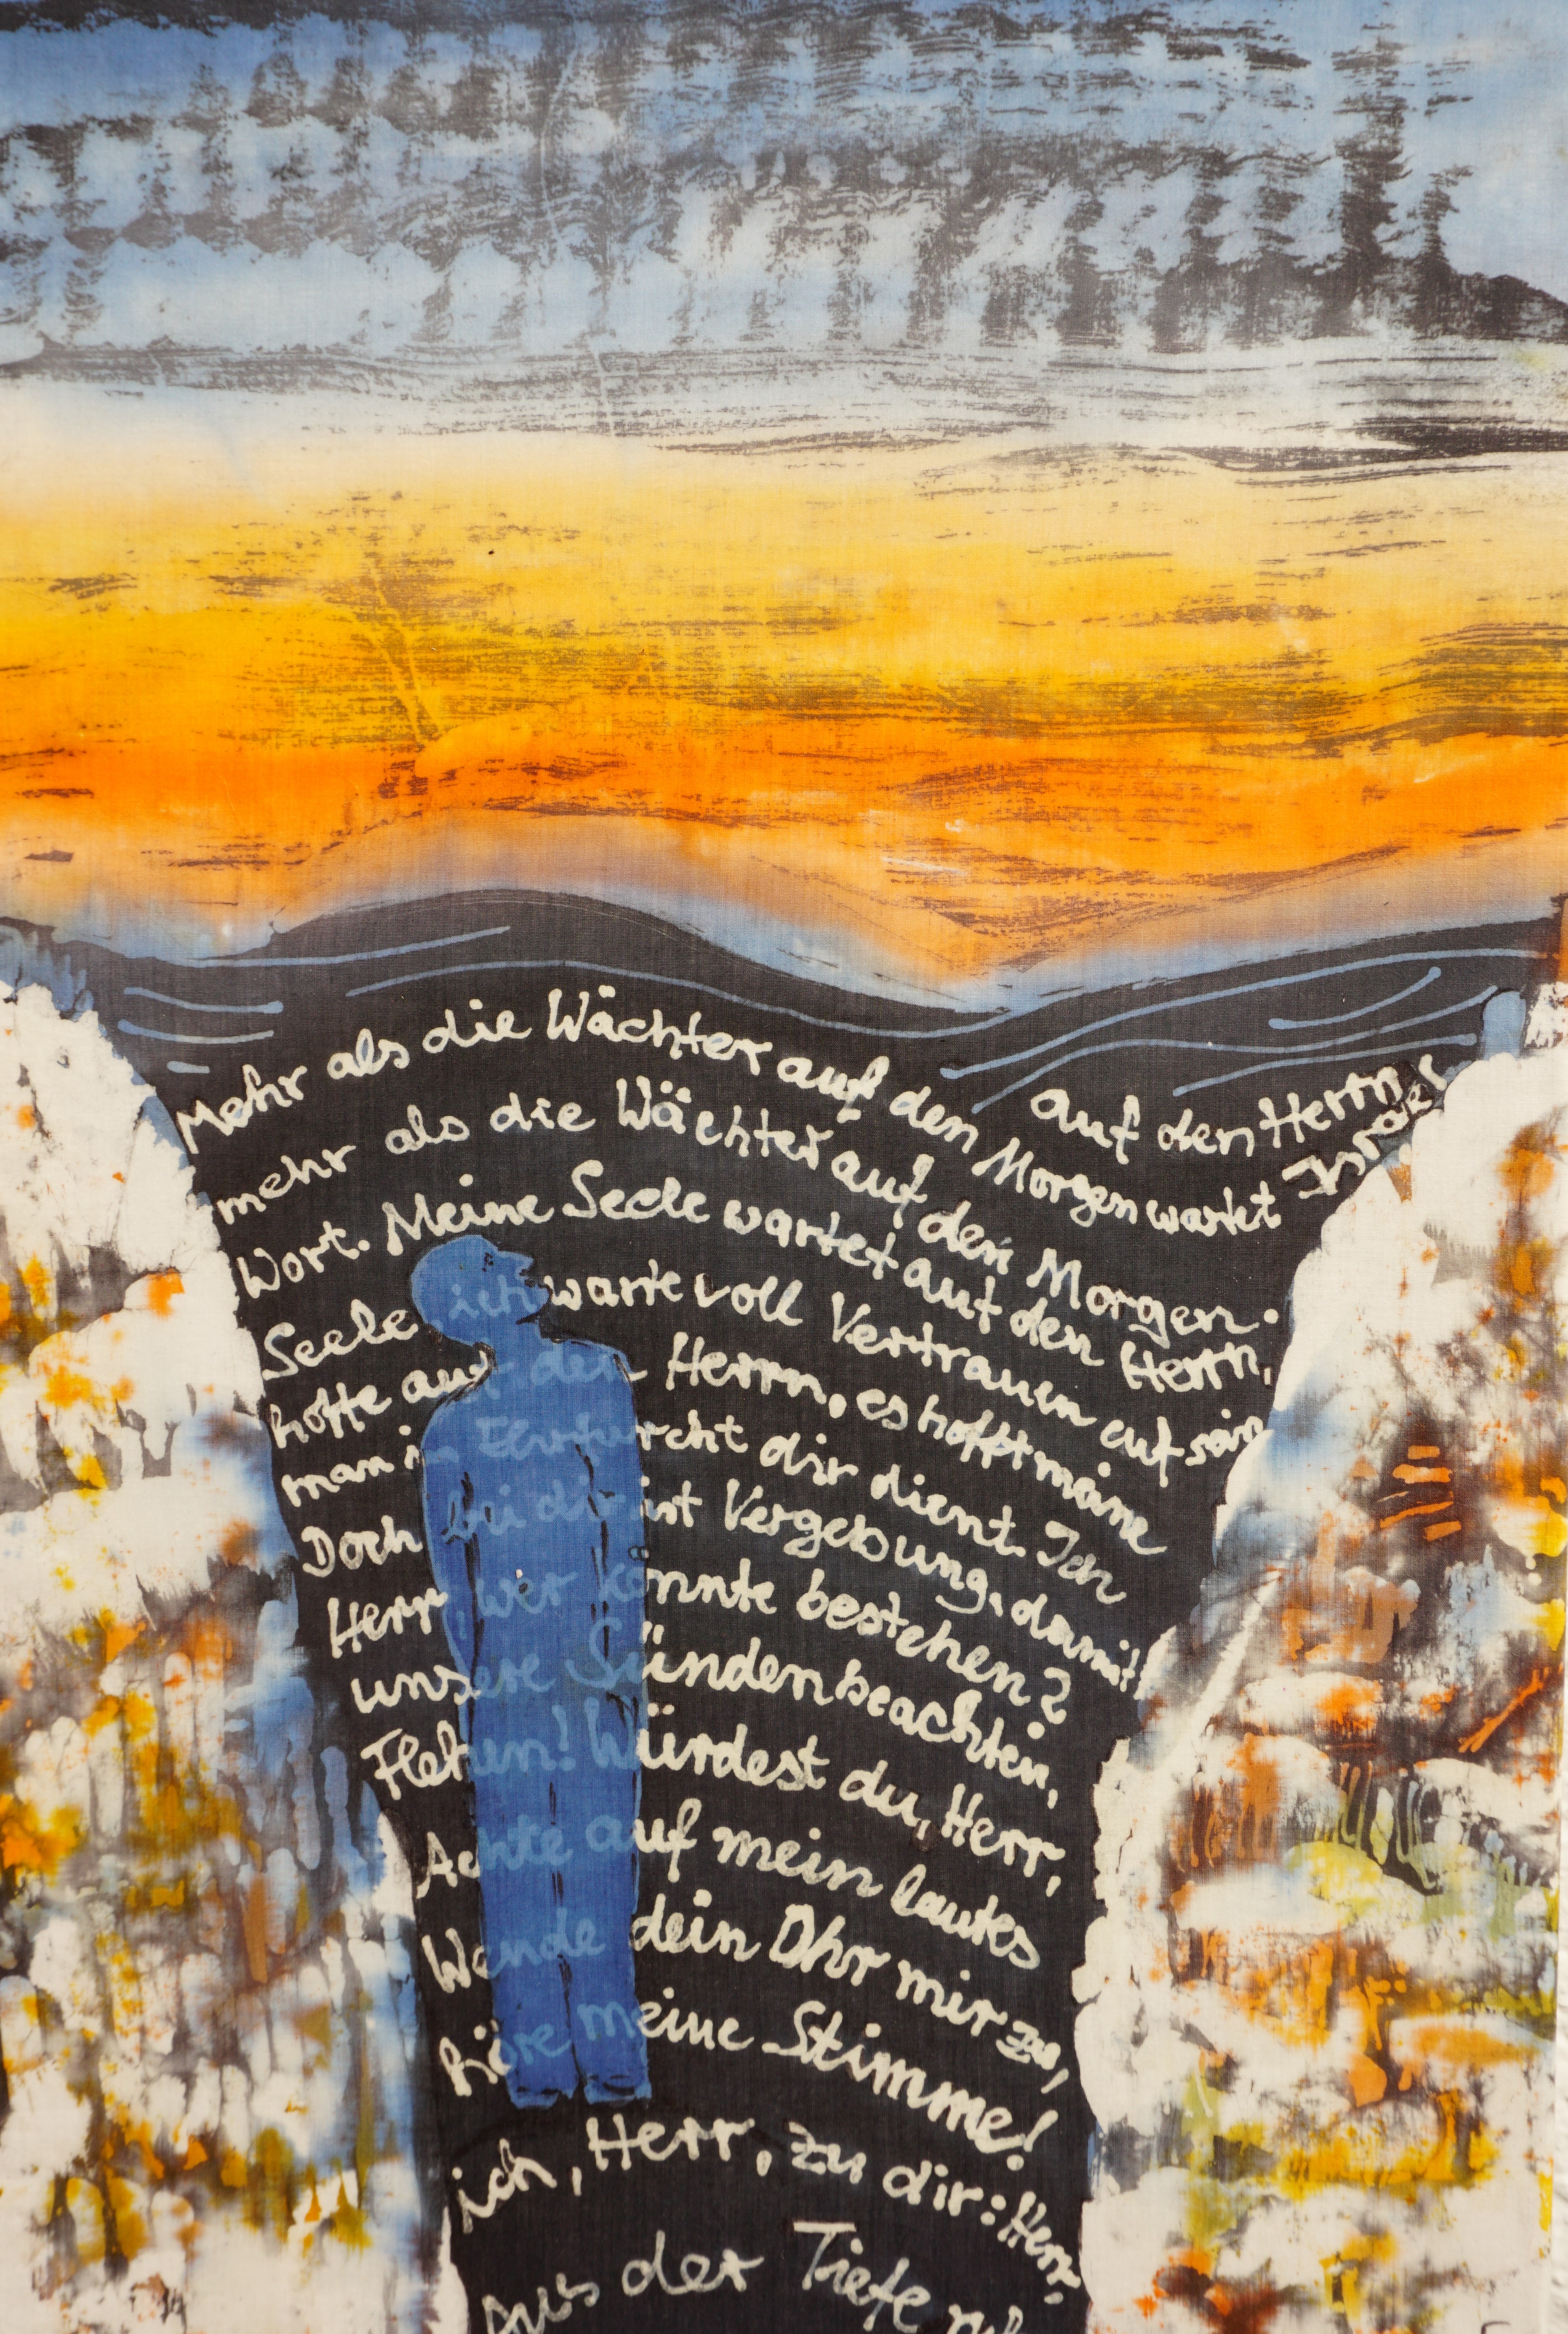 Aus der Tiefe
ich, Herr, zu dir: Herr,
höre meine Stimme!
Wende dein Ohr mir zu,
Achte auf mein lautes
Flehen! Würdest du, Herr,
unsere Sünden beachten,
Herr, wer könnte bestehen?
Doch bei dir ist Vergebung, damit
man in Ehrfurcht dir dient. Ich
hoffe auf den Herrn, es hofft meine
Seele ich warte voll Vertrauen auf sein
Wort. Meine Seele wartet auf den Herrn,
mehr als die Wächter auf den Morgen.
Mehr als die Wächter auf den Morgen wartet Israel
auf den Herrn